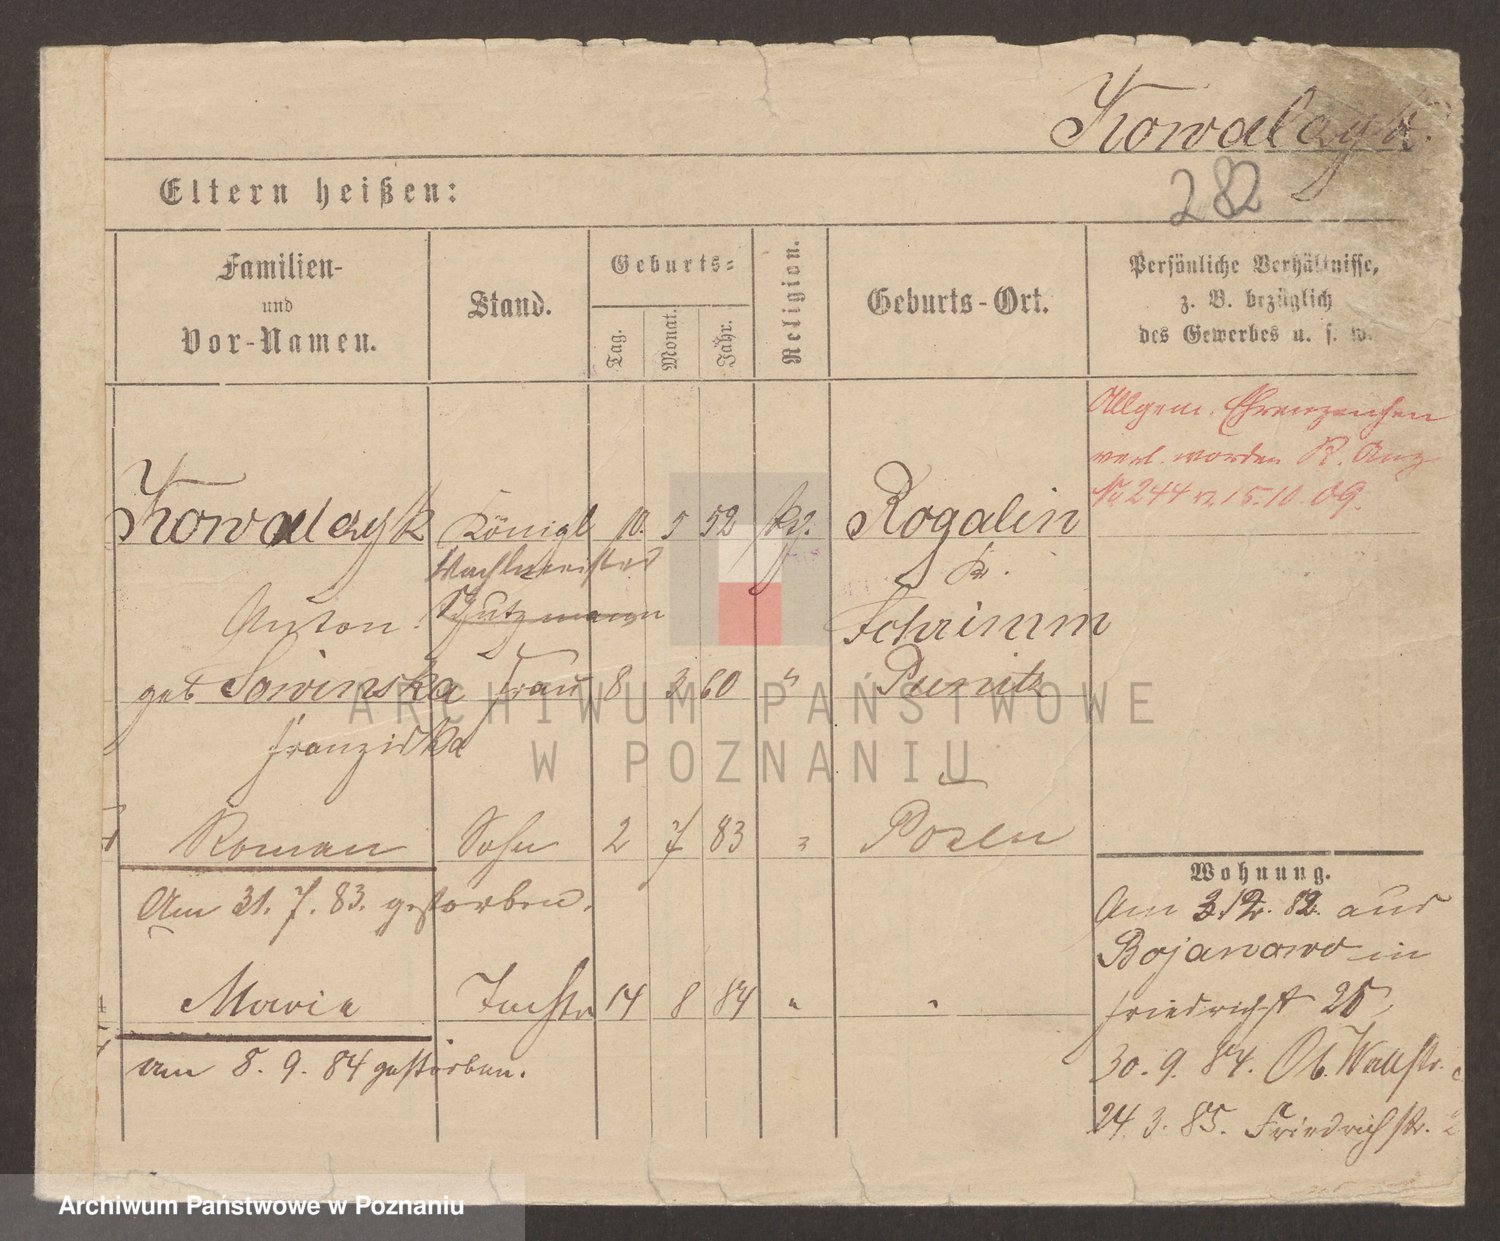 Kowalczyk.
282
Eltern heißen:
Familien-
und
Vor-Namen.
Stand.
Geburts-
Tag.
Monat.
Jahr.
Religion.
Geburts-Ort.
Persönliche Verhältnisse,
z. B. bezüglich
des Gewerbes u. s. w.
Allgem. Ehrenzeichen
verl. worden R. Anz
No 244 v. 15.10.09.
Kowalczyk Königl 10. 5 52 Rogalin
Wachtmeister Kr.
Anton Schutzmann Schrimm
geb Sowinska Frau 8 3 60 " Punitz
Franziska
Roman Sohn 2 7 83 " Posen
Am 31. 7. 83. gestorben.
Maria Tochter 14 8 84 " "
am 8. 9. 84 gestorben.
Wohnung.
Am 3.12. 82. aus
Bojanowo in
Friedrichst 25
30. 9. 84. Ob. Wallstr.
24. 3. 85. Friedrichstr. 2
ARCHIWUM PAŃSTWOWE
W POZNANIU
Archiwum Państwowe w Poznaniu